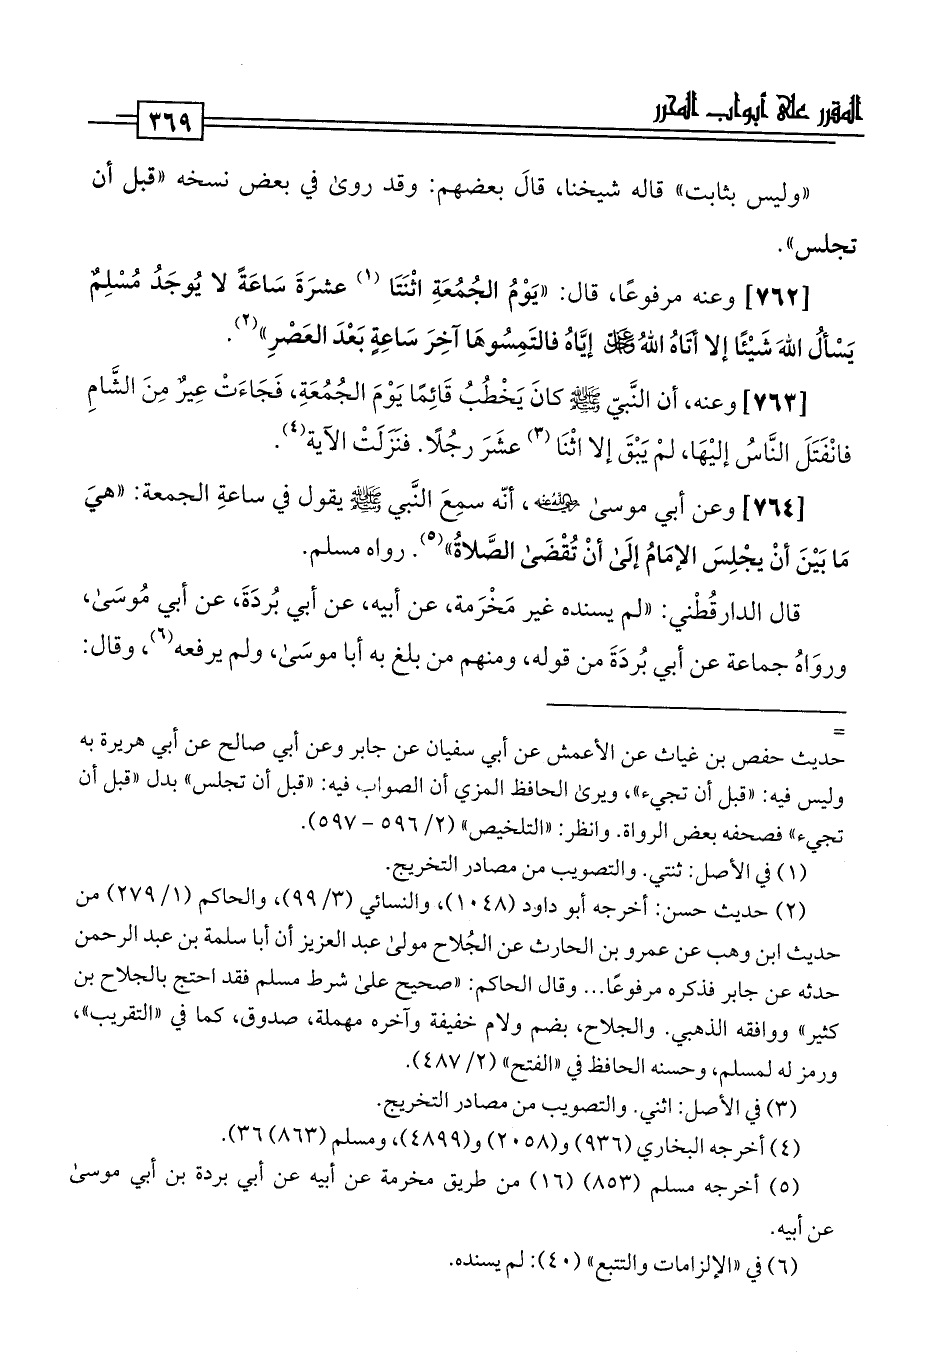 المقرر على أبواب المحرر
٣٦٩
«وليس بثابت» قاله شيخنا، قالَ بعضهم: وقد روىٰ في بعض نسخه «قبل أن
تجلس».
[٧٦٢] وعنه مرفوعًا، قال: «يَوْمُ الجُمُعَةِ اثْنَتَا (١) عشرَةَ سَاعَةً لا يُوجَدُ مُسْلِمٌ
يَسْأَلُ اللهَ شَيْئًا إلا أتَاهُ اللهُ ﷿ إيَّاهُ فالتَمِسُوهَا آخِرَ سَاعِةٍ بَعْدَ العَصْرِ»(٢).
[٧٦٣] وعنه، أن النَّبيّ ﷺ كانَ يَخْطُبُ قَائِمًا يَوْمَ الجُمُعَةِ، فَجَاءَتْ عِيرٌ مِنَ الشَّامِ
فانْفَتَلَ النَّاسُ إليْهَا، لمْ يَبْقَ إلا اثْنَا (٣) عشَرَ رجُلًا. فنَزَلَتْ الآية(٤).
[٧٦٤] وعن أبي موسىٰ ﵁، أنَّه سمِعَ النَّبي ﷺ يقول في ساعةِ الجمعة: «هيَ
مَا بَيْنَ أنْ يجْلِسَ الإمَامُ إلىٰ أنْ تُقْضَىٰ الصَّلاةُ»(٥). رواه مسلم.
قال الدارقُطْني: «لم يسنده غير مَخْرَمة، عن أبيه، عن أبي بُردَةَ، عن أبي مُوسَىٰ،
وروَاهُ جماعة عن أبي بُردَةَ من قوله، ومنهم من بلغ به أبا موسَىٰ، ولم يرفعه(٦)، وقال:
=
حديث حفص بن غياث عن الأعمش عن أبي سفيان عن جابر وعن أبي صالح عن أبي هريرة به
وليس فيه: «قبل أن تجيء»، ويرىٰ الحافظ المزي أن الصواب فيه: «قبل أن تجلس» بدل «قبل أن
تجيء» فصحفه بعض الرواة. وانظر: «التلخيص» (٢/ ٥٩٦ - ٥٩٧).
(١) في الأصل: ثنتي. والتصويب من مصادر التخريج.
(٢) حديث حسن: أخرجه أبو داود (١٠٤٨)، والنسائي (٣/ ٩٩)، والحاكم (١/ ٢٧٩) من
حديث ابن وهب عن عمرو بن الحارث عن الجُلاح مولىٰ عبد العزيز أن أبا سلمة بن عبد الرحمن
حدثه عن جابر فذكره مرفوعًا... وقال الحاكم: «صحيح علىٰ شرط مسلم فقد احتج بالجلاح بن
كثير» ووافقه الذهبي. والجلاح، بضم ولام خفيفة وآخره مهملة، صدوق، كما في «التقريب»،
ورمز له لمسلم، وحسنه الحافظ في «الفتح» (٢/ ٤٨٧).
(٣) في الأصل: اثني. والتصويب من مصادر التخريج.
(٤) أخرجه البخاري (٩٣٦) و(٢٠٥٨) و(٤٨٩٩)، ومسلم (٨٦٣) ٣٦).
(٥) أخرجه مسلم (٨٥٣) (١٦) من طريق مخرمة عن أبيه عن أبي بردة بن أبي موسىٰ
عن أبيه.
(٦) في «الإلزامات والتتبع» (٤٠): لم يسنده.